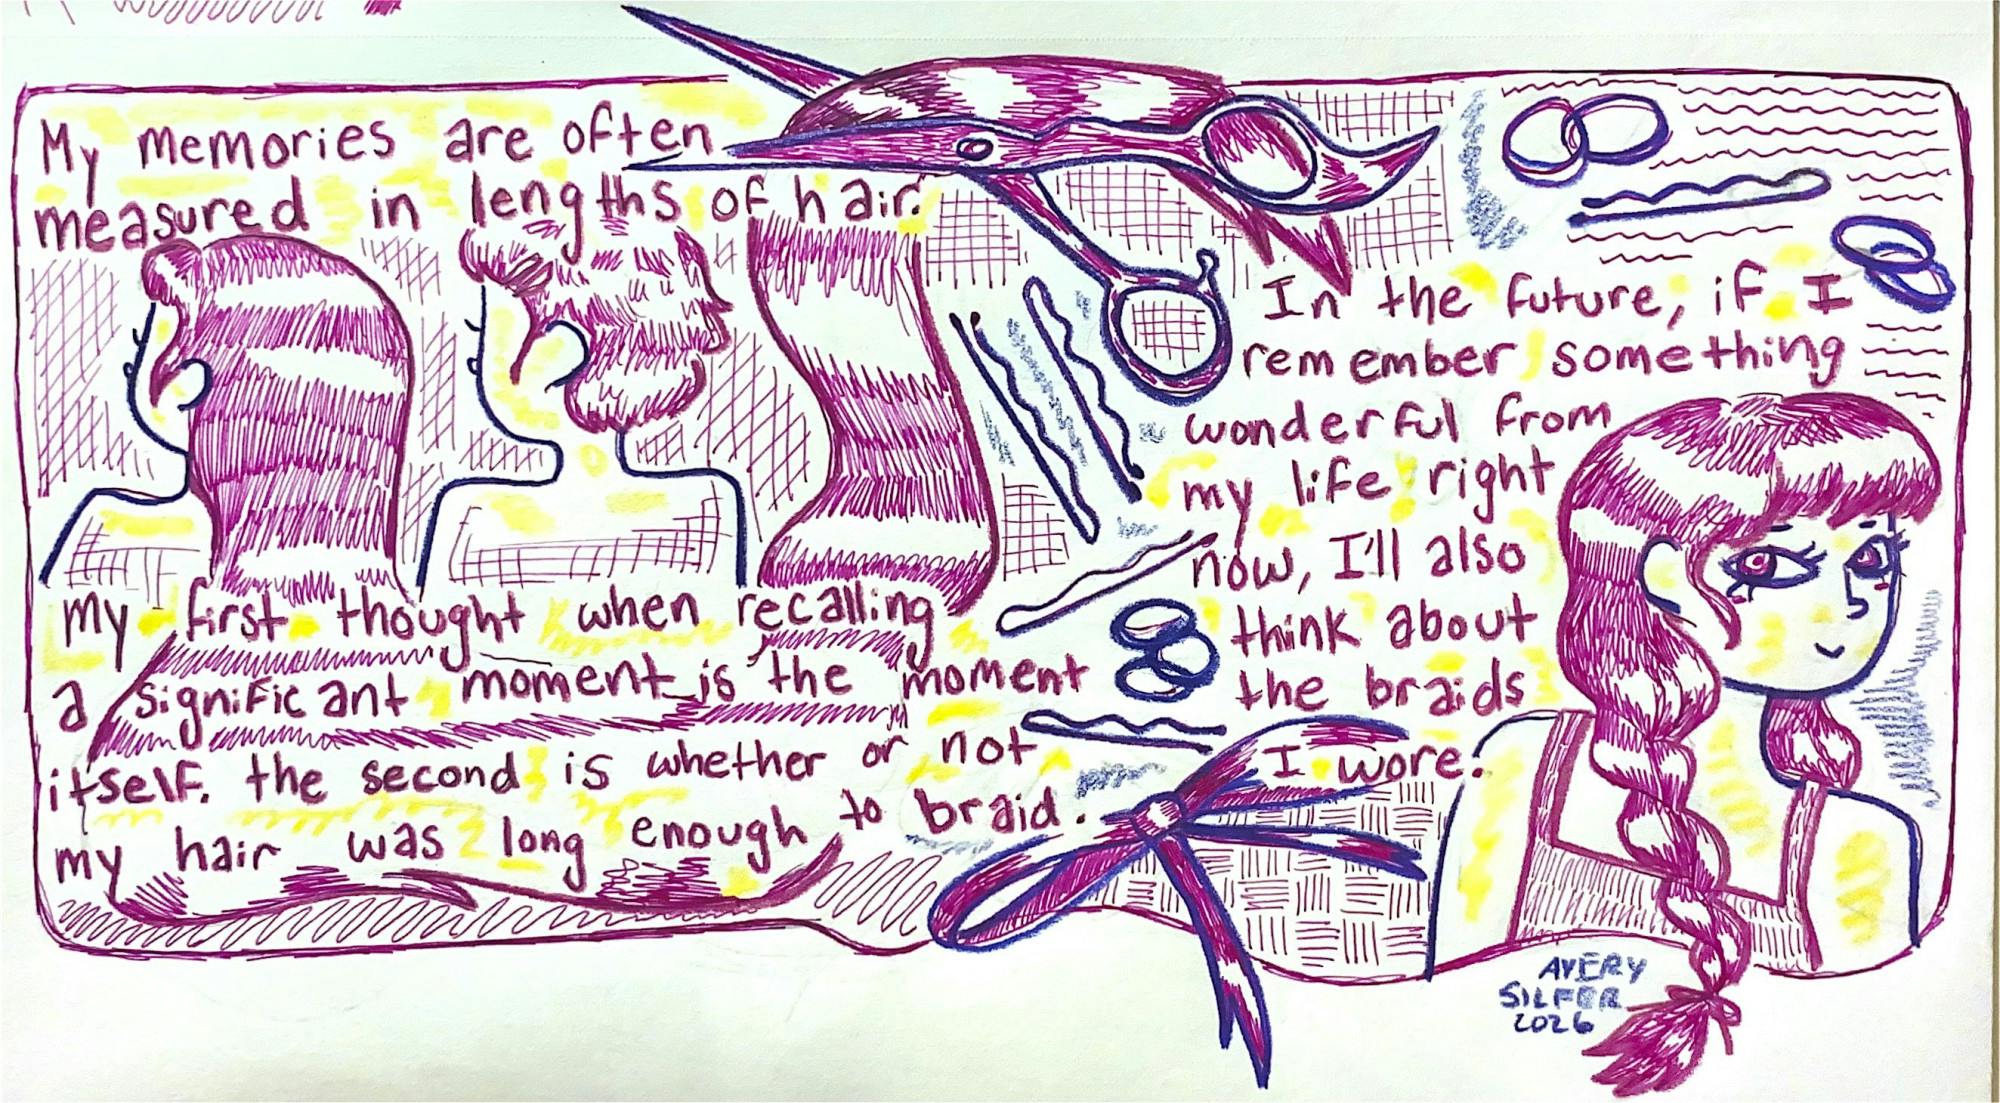 My memories are often
measured in lengths of hair.
my first thought when recalling
a significant moment is the moment
itself. the second is whether or not
my hair was long enough to braid.
In the future, if I
remember something
wonderful from
my life right
now, I'll also
think about
the braids
I wore.
AVERY
SILFER
2026